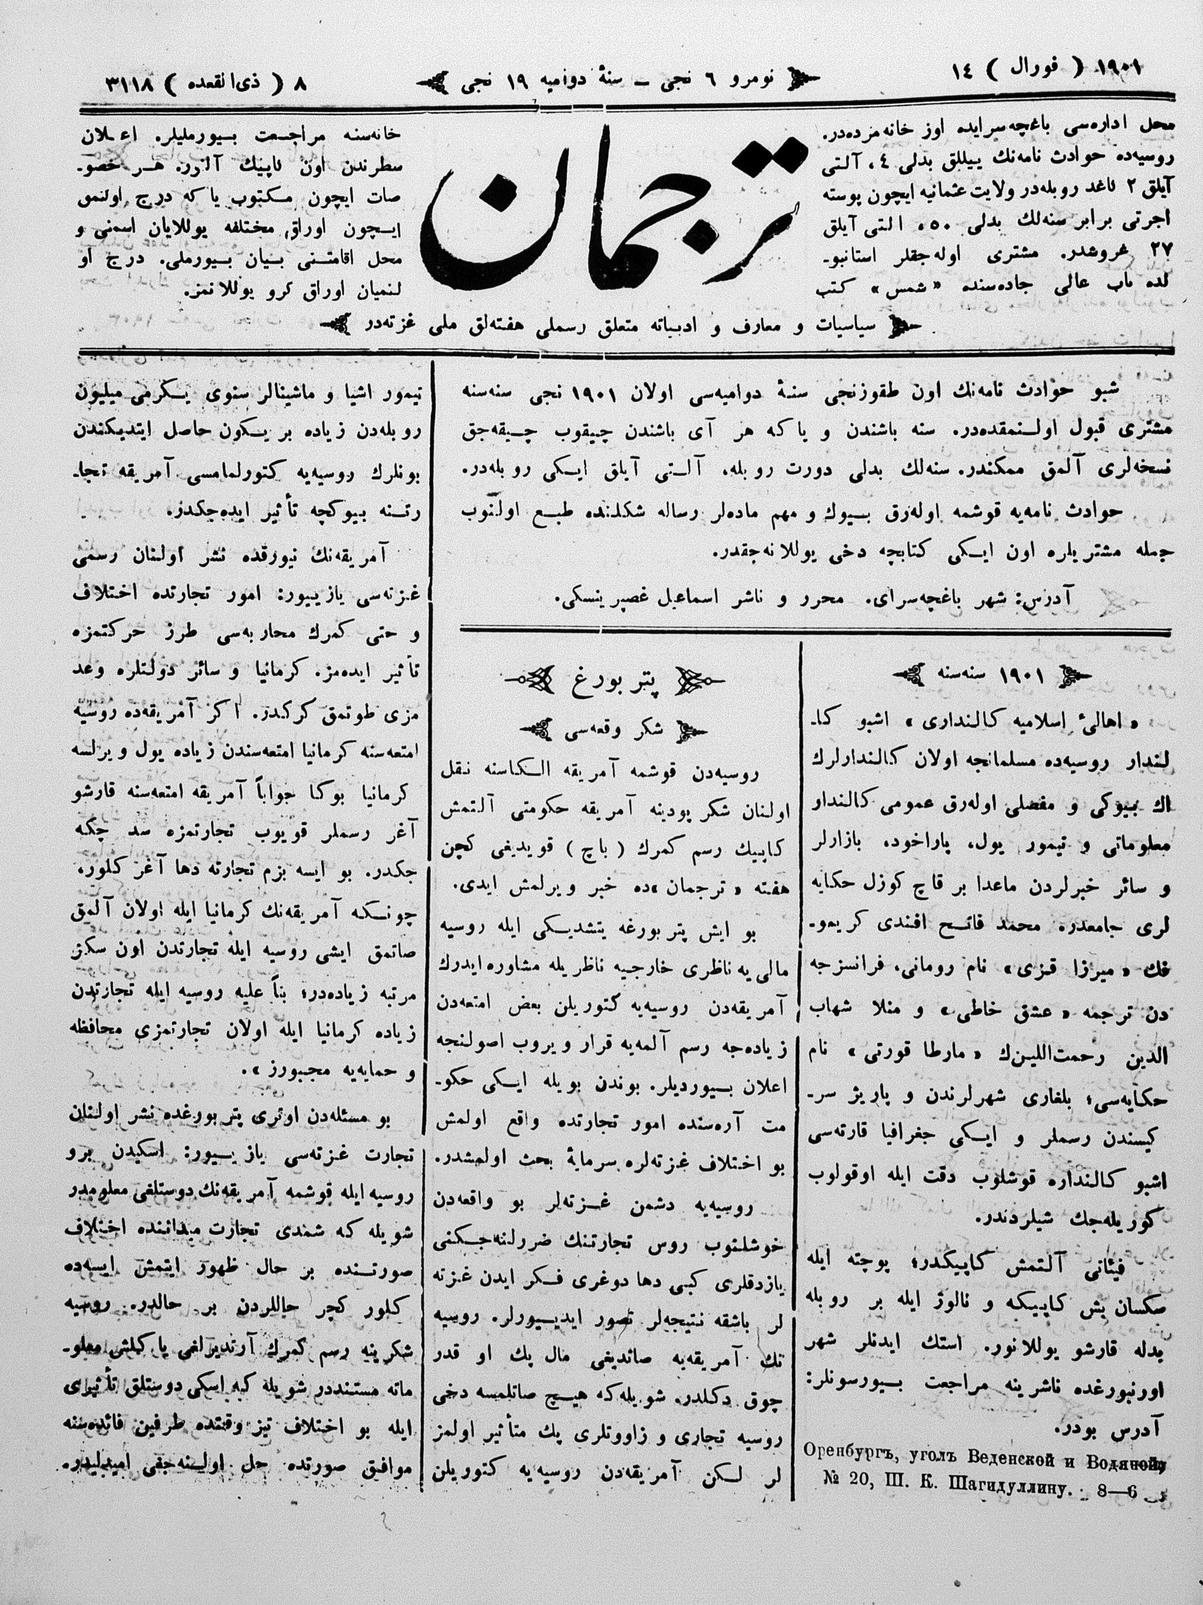 ١٩٠١ ( فورال ) ١٤
نومرو ٦ نجی ـ سنهٔ دوامیه ١٩ نجی
٨ ( ذی‌القعده ) ٣١١٨
محل اداره‌سی باغچه‌سرایده اوز خانه‌مزده‌در.
روسیه‌ده حوادث نامه‌نك ییللق بدلی ٤، آلتی
آیلق ٢ ناغد روبله‌در ولایت عثمانیه ایچون پوسته
اجرتی برابر سنه‌لك بدلی ٥٠، التی آیلق
٢٧ غروشدر. مشتری اوله‌جقلر استانبو-
لده باب عالی جاده‌سنده «شمس» كتب
ترجمان
خانه‌سنه مراجعت بیورملیلر. اعلان
سطرندن اون كاپیك آلنور. هر خصو-
صات ایچون مكتوب یا كه درج اولنمق
ایچون اوراق مختلفه یوللایان اسمنی و
محل اقامتنی بیان بیورملی. درج او
لنمیان اوراق كرو یوللانمز.
سیاسیات و معارف و ادبیاته متعلق رسملی هفته‌لق ملی غزته‌در
شبو حوادث نامه‌نك اون طقوزنجی سنهٔ دوامیه‌سی اولان ١٩٠١ نجی سنه‌سنه
مشتری قبول اولنمقده‌در. سنه باشندن و یا كه هر آی باشندن چیقوب چیقه‌جق
نسخه‌لری آلمق ممكندر. سنه‌لك بدلی دورت روبله، آلتی آیلق ایكی روبله‌در.
حوادث نامه‌یه قوشمه اوله‌رق بیوك و مهم ماده‌لر رساله شكلنده طبع اولنوب
جمله مشتریلره اون ایكی كتابچه دخی یوللانه‌جقدر.
آدرس: شهر باغچه‌سرای. محرر و ناشر اسماعیل غصپرینسكی.
١٩٠١ سنه‌سنه
« اهالئ اسلامیه كالنداری » اشبو كا-
لندار روسیه‌ده مسلمانجه اولان كالندارلرك
اك بیوكی و مفصلی اوله‌رق عمومی كالندار
معلوماتی و تیمور یول، پاراخود، بازارلر
و سائر خبرلردن ماعدا بر قاچ كوزل حكایه
لری جامعدر. محمد فاتح افندی كریمو-
فك « میرزا قزی » نام رومانی، فرانسزجه
دن ترجمه « عشق خاطی » و منلا شهاب
الدین رحمت‌اللین‌ك « مارطا قورتی » نام
حكایه‌سی؛ بلغاری شهرلرندن و پاریژ سر-
كیسندن رسملر و ایكی جغرافیا قارته‌سی
اشبو كالنداره قوشلوب دقت ایله اوقولوب
كوریله‌جك شیلردندر.
فیئاتی آلتمش كاپیكدر؛ پوچته ایله
سكسان بش كاپیكه و نالوژ ایله بر روبله
بدله قارشو یوللانور. استك ایدنلر شهر
اورنبورغده ناشرینه مراجعت بیورسونلر:
آدرس بودر.
Оренбургъ, уголъ Веденской и Водяной,
№ 20, Ш. К. Шагидуллину. 8—6
پتر بورغ
شكر وقعه‌سی
روسیه‌دن قوشمه آمریقه الكاسنه نقل
اولنان شكر پودینه آمریقه حكومتی آلتمش
كاپیك رسم كمرك ( باج ) قویدیغی كچن
هفته « ترجمان »ده خبر ویرلمش ایدی.
بو ایش پتربورغه یتشدیكی ایله روسیه
مالی‌یه ناظری خارجیه ناظریله مشاوره ایدرك
آمریقه‌دن روسیه‌یه كتوریلن بعض امتعه‌دن
زیاده‌جه رسم آلمه‌یه قرار ویروب اصولنجه
اعلان بیوردیلر. بوندن بویله ایكی حكو-
مت آره‌سنده امور تجارتده واقع اولمش
بو اختلاف غزته‌لره سرمایهٔ بحث اولمشدر.
روسیه‌یه دشمن غزته‌لر بو واقعه‌دن
خوشلنوب روس تجارتنك ضررلنه‌جكنی
یازدقلری كبی دها دوغری فكر ایدن غزته
لر باشقه نتیجه‌لر تصور ایدیورلر. روسیه
نك آمریقه‌یه صاتدیغی مال پك او قدر
چوق دكلدر. شویله‌كه هیچ صاتلمسه دخی
روسیه تجاری و زاووتلری پك متأثیر اولمز
لر لكن آمریقه‌دن روسیه‌یه كتوریلن
تیمور اشیا و ماشینالر سنوی یكرمی میلیون
روبله‌دن زیاده بر یكون حاصل ایتدیكندن
بونلرك روسیه‌یه كتورلمامسی آمریقه تجا-
رتنه بیوكچه تأثیر ایده‌جكدر.
آمریقه‌نك نیورقده نشر اولنان رسمی
غزته‌سی یازییور: امور تجارتده اختلاف
و حتی كمرك محاربه‌سی طرز حركتمزه
تأثیر ایده‌مز. كرمانیا و سائر دولتلره وعد
مزی طوتمق كركدر. اكر آمریقه‌ده روسیه
امتعه‌سنه كرمانیا امتعه‌سندن زیاده یول ویرلسه
كرمانیا بوكا جواباً آمریقه امتعه‌سنه قارشو
آغر رسملر قویوب تجارتمزه سد چكه
جكدر. بو ایسه بزم تجارته دها آغر كلور،
چونكه آمریقه‌نك كرمانیا ایله اولان آلمق
صاتمق ایشی روسیه ایله تجارتدن اون سكز
مرتبه زیاده‌در؛ بناً علیه روسیه ایله تجارتدن
زیاده كرمانیا ایله اولان تجارتمزی محافظه
و حمایه‌یه مجبورز ».
بو مسئله‌دن اوتری پتربورغده نشر اولنان
تجارت غزته‌سی یازییور: اسكیدن برو
روسیه ایله قوشمه آمریقه‌نك دوستلغی معلومدر
شویله كه شمدی تجارت میداننده اختلاف
صورتنده بر حال ظهور ایتمش ایسه‌ده
كلور كچر حاللردن بر حالدر. روسیه
شكرینه رسم كمرك آرتدیرلغی یا كلش معلو-
ماته مستنددر شویله كه اسكی دوستلق تأثیری
ایله بو اختلاف تیز وقتده طرفین فائده‌سنه
موافق صورتده حل اولنه‌جغی امیدلیدر.